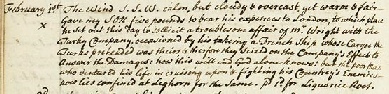 February 1st The Wind S.S.W. calm, but cloudy & overcast yet warm & fair.
x Gave my Son five pounds to bear his expences to London, to which place
he set out this day to sollicit a troublesome affair of Mr Wright with the
Turky Company, occasioned by his takeing a French Ship whose Cargo the
Company pretended was theirs & therefore they seized on the Company's Effects to
Answer the Damages: how this will end God alone knows but the poor Man
who ventured his life in cruising upon & fighting his Country's Enemies
now lies confined at Leghorn for the Same. pd 1d for Liquorice Root.